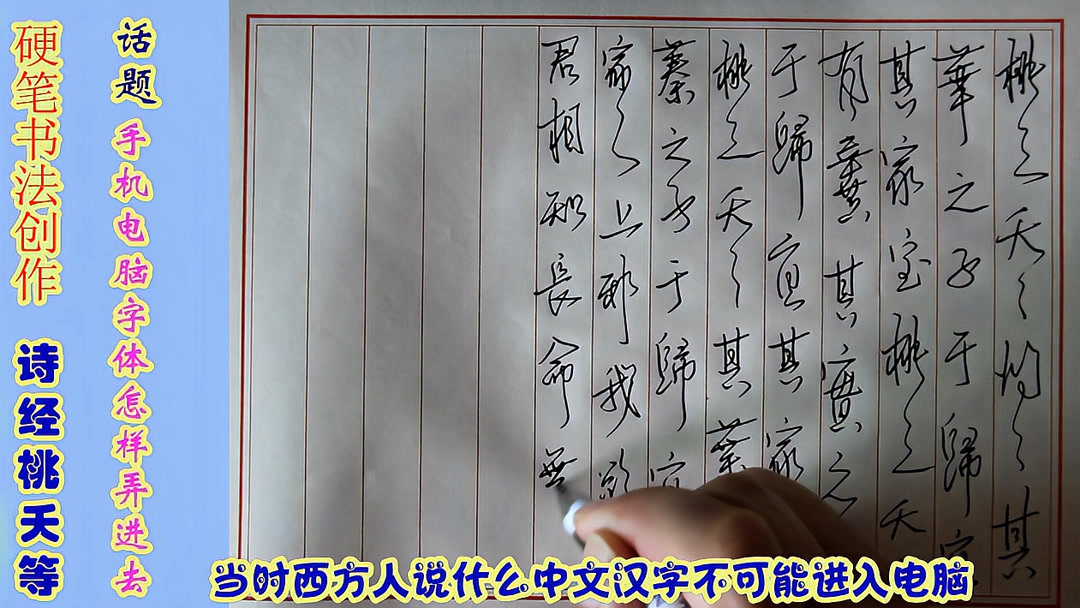 硬笔书法创作 诗经桃夭等
话题 手机电脑字体怎样弄进去
桃之夭〻灼〻其
華之子于歸宜
其家室桃之夭
有蕡其實之
于歸宜其家
桃之夭〻其葉
蓁之子于歸宜
家人上邪我欲
君相知長命無
当时西方人说什么中文汉字不可能进入电脑